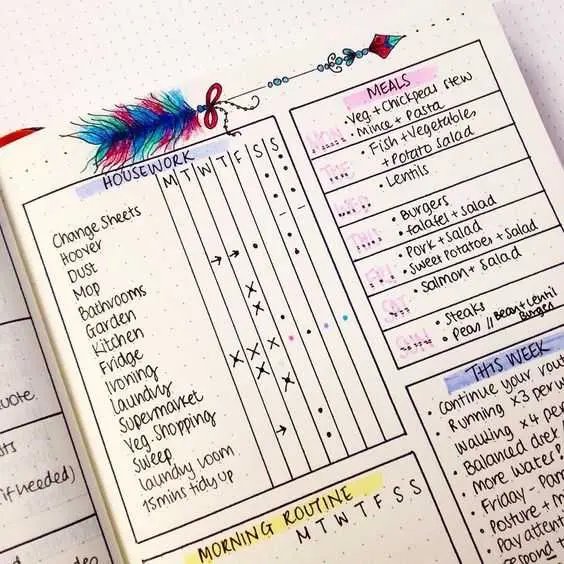 HOUSEWORK
M T W T F S S
Change Sheets
Hoover
Dust
Mop
Bathrooms
Garden
Kitchen
Fridge
Ironing
laundry
Supermarket
Veg. Shopping
Sweep
laundry room
15mins tidy up
MORNING ROUTINE
M T W T F S S
MEALS
MON
• Veg + Chickpeas stew
• Mince + Pasta
TUE
• Fish + Vegetables
+ Potato salad
WED
• Lentils
THU
• Burgers
• falafel + salad
FRI
• Pork + Salad
• Sweet potatoes + Salad
SAT
• Salmon + Salad
SUN
• Steaks
• Peas // Bean + Lentil
Burger
THIS WEEK
• continue your
• Running x3 per
walking x 4 per
• Balanced diet
• More water
• Friday -
• Posture +
• Pay
uote
ts
if needed)